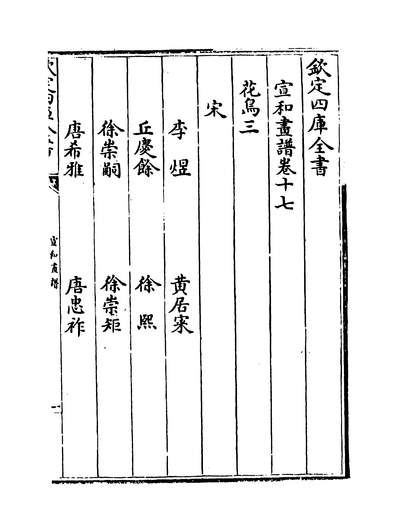 欽定四庫全書
宣和畫譜卷十七
花鳥三
宋
李煜　黄居寀
丘慶餘　徐熙
徐崇嗣　徐崇矩
唐希雅　唐忠祚
宣和畫譜
一